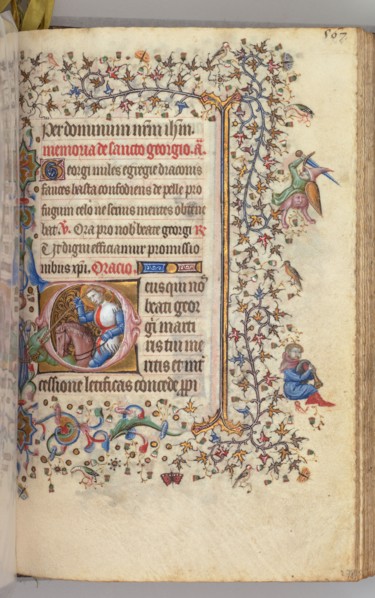 507
per dominum nr̄m ih̄m.
memoria de sancto georgio. a͠.
Georgi miles egregie draconis
fauces hasta confodiens de pelle pro
fugum celo ne senus mentes
bat. V. Ora pro nob̄ beate georgi R
Ut digni efficiamur promissio
nibus xp̄i. Oracio.
Deus qui no
beati geor
gii marti
ris tui me
ritis et int̄
cessione letificas concede p̄pi